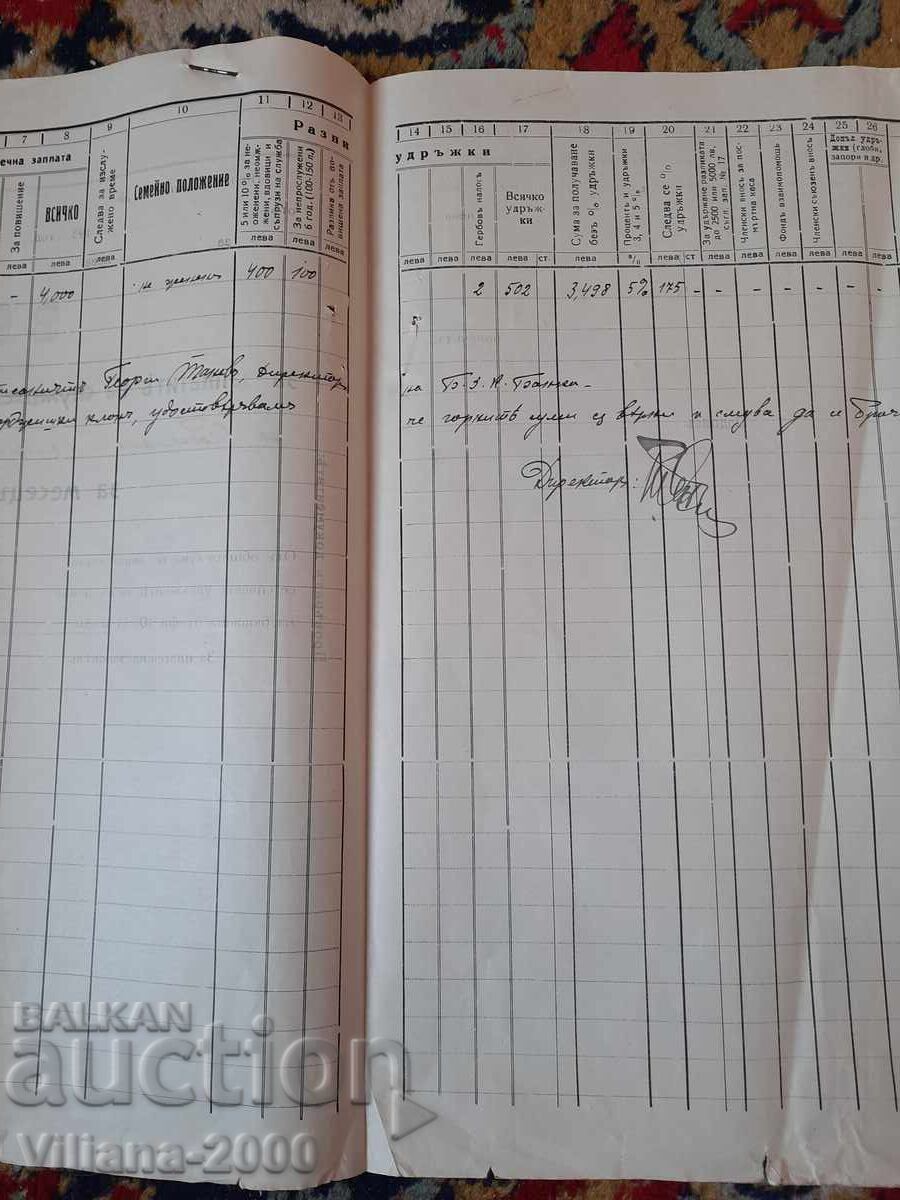 7 8 9 10 11 12 13
Разни
ечна заплата
За повишение
ВСИЧКО
Следва за изслужено време
Семейно положение
5 или 10% за неоженени, неомъжени, вдовици и съпрузи на служба
За непрослужени 6 год. (100-150 л.)
Разлика отъ повишена заплата
лева лева лева лева лева лева
- 4,000 не жененъ 400 100
Георги Таневъ, Директоръ
клонъ, удостоверявамъ
14 15 16 17 18 19 20 21 22 23 24 25 26
удръжки
Гербовъ налогъ
Всичко удръжки
Сума за получаване безъ % удръжки
Процентъ и удръжки 3, 4 и 5%
Следва се % удръжки
За удържане разликата до 2500 или 5000 лв. съгл. зап. № 17
Членски вносъ за посмъртна каса
Фондъ взаимопомощь
Членски съюзенъ вносъ
Допъл. удръжки (глоби, запори и др.
лева лева лева лева ст. лева % лева ст лева лева лева лева лева лева
2 502 3,498 5% 175 - - - - - - -
на Б. З. К. Банка
че горнитѣ суми са вѣрни и следва да се
Директоръ:
за месецъ
BALKAN
auction
Viliana-2000